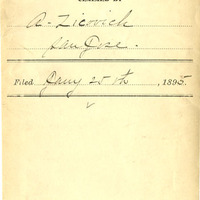 A. Zicovich
San Jose.
Filed Jany 25th, 1895.